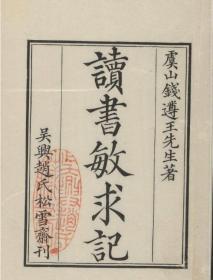 虞山錢遵王先生著
讀書敏求記
吴興趙氏松雪齋刊